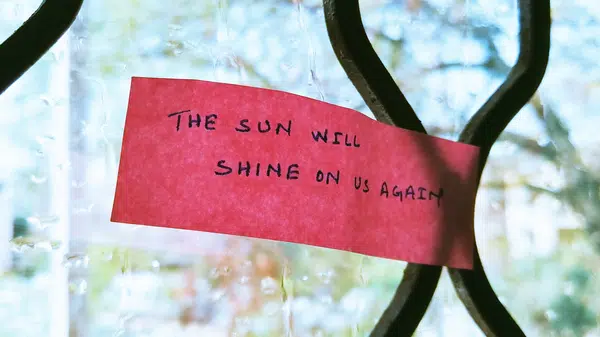 THE SUN WILL
SHINE ON US AGAIN